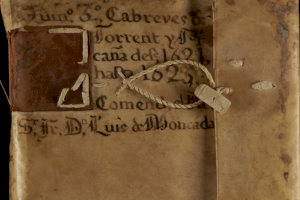 Num.º 3.º Cabreves de
Torrent y Pi
caña desde 1621
hasta 1625
Comend
S.r Fr. D.n Luis de Moncada